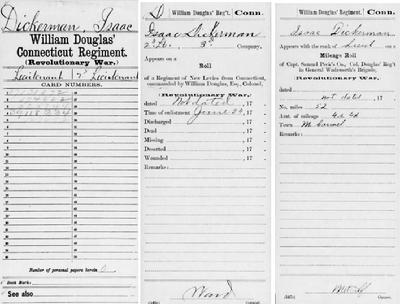 Dickerman, Isaac
William Douglas'
Connecticut Regiment.
(Revolutionary War.)
Lieutenant | 2d Lieutenant
CARD NUMBERS.
Number of personal papers herein 0
Book Mark:
See also
D | William Douglas' Reg't. | Conn.
Isaac Dickerman
Company,
Appears on a
Roll
of a Regiment of New Levies from Connecticut,
commanded by William Douglas, Esq., Colonel,
(Revolutionary War,)
dated Not dated, 17
Time of enlistment June 20, 17
Discharged , 17
Dead , 17
Missing , 17
Deserted , 17
Wounded , 17
Remarks:
Ward
Copyist.
William Douglas' Reg't. | Conn.
Isaac Dickerman
Appears with the rank of Lieut on a
Mileage Roll
of Capt. Samuel Peck's Co., Col. Douglas' Reg't
in General Wadsworth's Brigade,
(Revolutionary War,)
dated not dated, 17
No. miles 52
Amt. of mileage
Town Mt Carmel
Remarks:
Metcalf
Copyist.